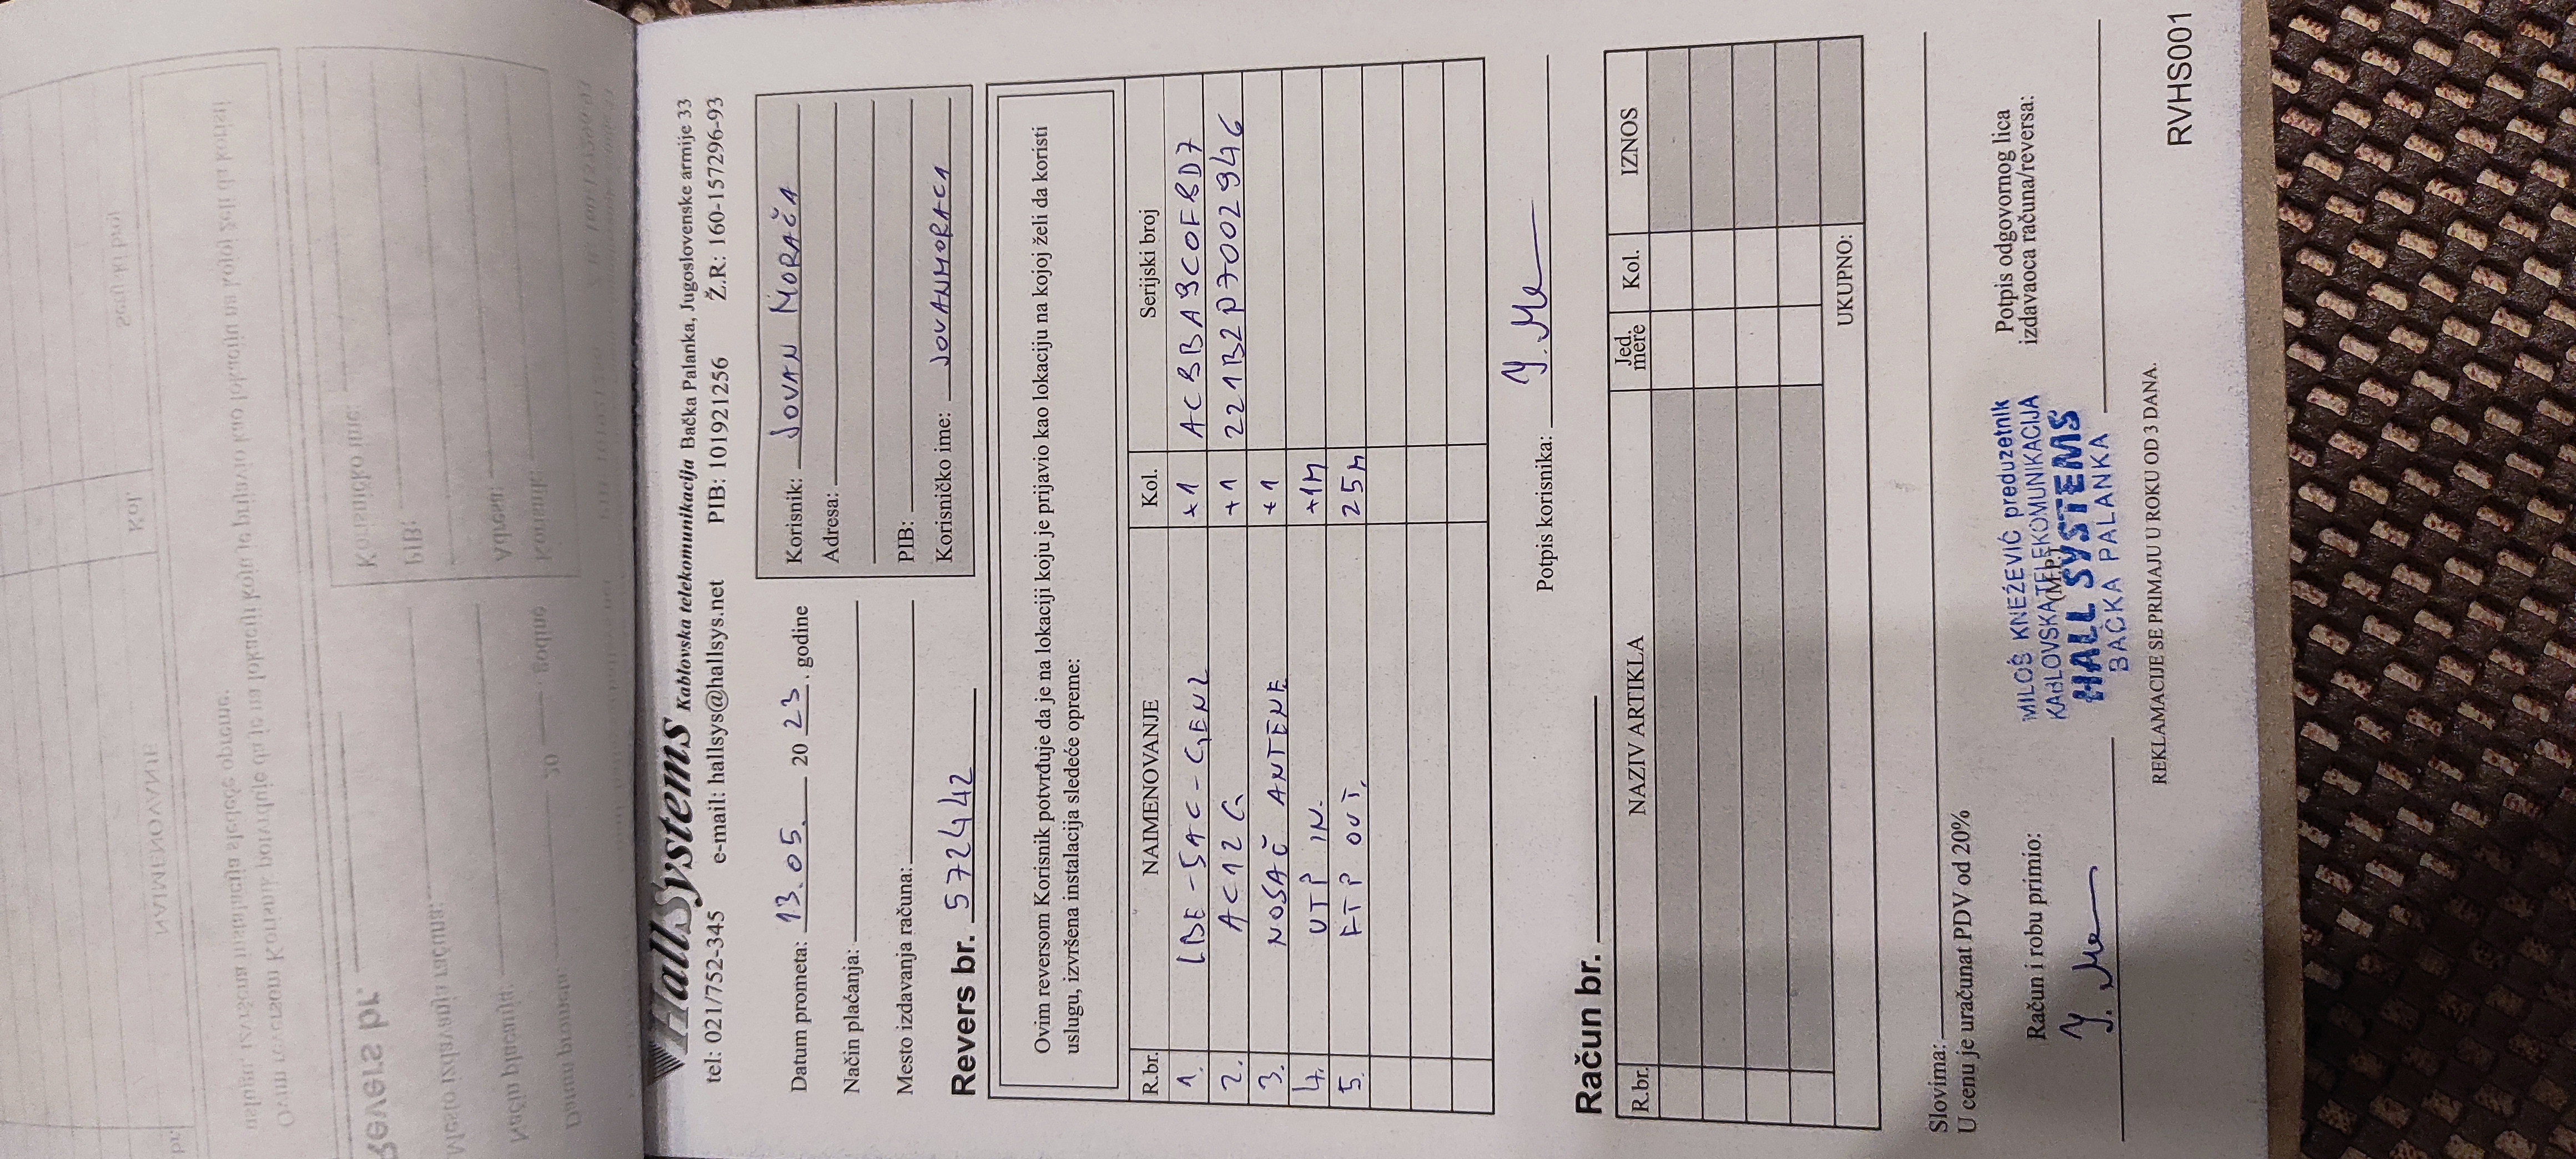 HallSystems Kablovska telekomunikacija Bačka Palanka, Jugoslovenske armije 33
tel: 021/752-345 e-mail: hallsys@hallsys.net PIB: 101921256 Ž.R: 160-157296-93
Datum prometa: 13.05. 20 23. godine
Način plaćanja:
Mesto izdavanja računa:
Revers br. 572442
Korisnik: JOVAN MORAČA
Adresa:
PIB:
Korisničko ime: JOVANMORACA
Ovim reversom Korisnik potvrđuje da je na lokaciji koju je prijavio kao lokaciju na kojoj želi da koristi
uslugu, izvršena instalacija sledeće opreme:
R.br. NAIMENOVANJE Kol. Serijski broj
1. LBE-5AC-GEN2 +1 AC8BA9C0F8D7
2. AC12G +1 221B2P7002946
3. NOSAČ ANTENE +1
4. UTP IN. +1M
5. FTP OUT. 25M
Potpis korisnika:
Račun br.
R.br. NAZIV ARTIKLA Jed. mere Kol. IZNOS
UKUPNO:
Slovima:
U cenu je uračunat PDV od 20%
Račun i robu primio:
(M.P.)
MILOŠ KNEŽEVIĆ preduzetnik
KABLOVSKA TELEKOMUNIKACIJA
HALL SYSTEMS
BAČKA PALANKA
Potpis odgovornog lica
izdavaoca računa/reversa:
REKLAMACIJE SE PRIMAJU U ROKU OD 3 DANA.
RVHS001